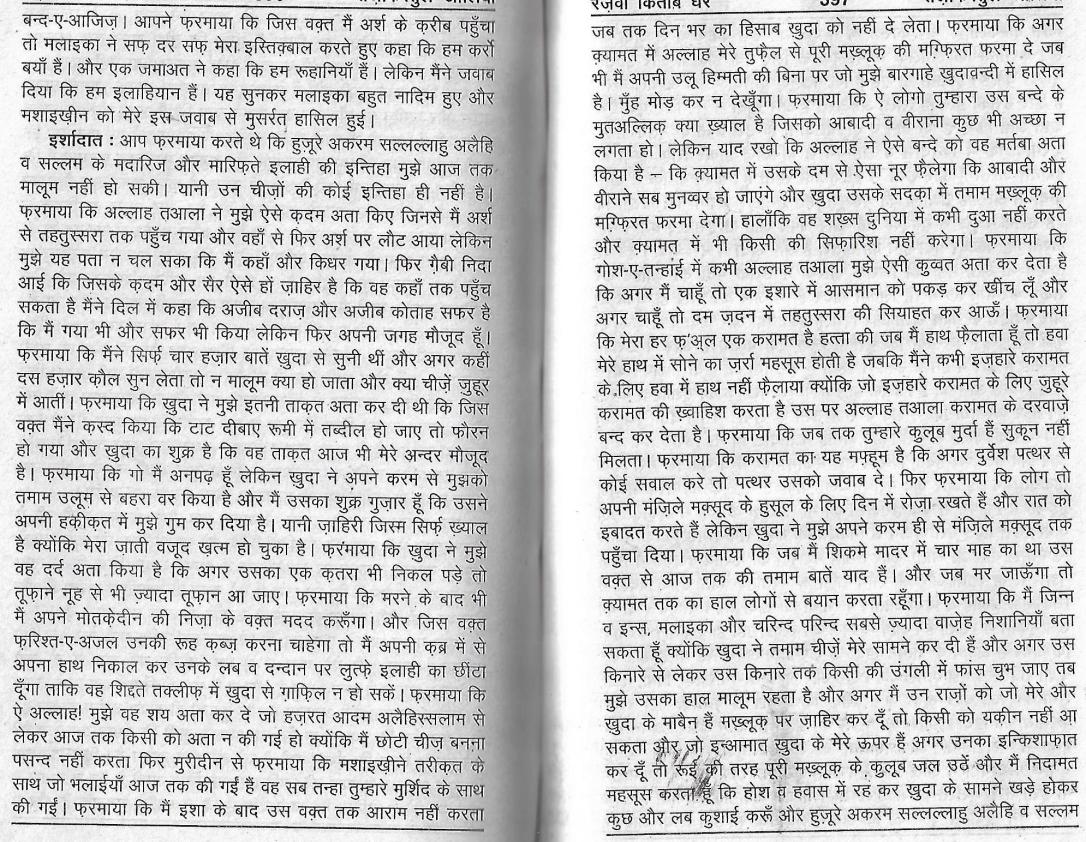 बन्द-ए-आजिज़। आपने फ़रमाया कि जिस वक़्त मैं अर्श के क़रीब पहुँचा
तो मलाइका ने सफ़ दर सफ़ मेरा इस्तिक़बाल करते हुए कहा कि हम कर्रो
बयाँ हैं। और एक जमाअत ने कहा कि हम रूहानियाँ हैं। लेकिन मैंने जवाब
दिया कि हम इलाहियान हैं। यह सुनकर मलाइका बहुत नादिम हुए और
मशाइख़ीन को मेरे इस जवाब से मुसर्रत हासिल हुई।
इर्शादात : आप फ़रमाया करते थे कि हुज़ूरे अकरम सल्लल्लाहु अलैहि
व सल्लम के मदारिज और मारिफ़ते इलाही की इन्तिहा मुझे आज तक
मालूम नहीं हो सकी। यानी उन चीज़ों की कोई इन्तिहा ही नहीं है।
फ़रमाया कि अल्लाह तआला ने मुझे ऐसे क़दम अता किए जिनसे मैं अर्श
से तहतुस्सरा तक पहुँच गया और वहाँ से फिर अर्श पर लौट आया लेकिन
मुझे यह पता न चल सका कि मैं कहाँ और किधर गया। फिर ग़ैबी निदा
आई कि जिसके क़दम और सैर ऐसे हों ज़ाहिर है कि वह कहाँ तक पहुँच
सकता है मैंने दिल में कहा कि अजीब दराज़ और अजीब कोताह सफर है
कि मैं गया भी और सफर भी किया लेकिन फिर अपनी जगह मौजूद हूँ।
फ़रमाया कि मैंने सिर्फ़ चार हज़ार बातें ख़ुदा से सुनी थीं और अगर कहीं
दस हज़ार क़ौल सुन लेता तो न मालूम क्या हो जाता और क्या चीज़ें ज़ुहूर
में आतीं। फ़रमाया कि ख़ुदा ने मुझे इतनी ताक़त अता कर दी थी कि जिस
वक़्त मैंने क़स्द किया कि टाट दीबाए रूमी में तब्दील हो जाए तो फौरन
हो गया और ख़ुदा का शुक्र है कि वह ताक़त आज भी मेरे अन्दर मौजूद
है। फ़रमाया कि गो मैं अनपढ़ हूँ लेकिन ख़ुदा ने अपने करम से मुझको
तमाम उलूम से बहरा वर किया है और मैं उसका शुक्र गुज़ार हूँ कि उसने
अपनी हक़ीक़त में मुझे गुम कर दिया है। यानी ज़ाहिरी जिस्म सिर्फ़ ख़्याल
है क्योंकि मेरा ज़ाती वजूद ख़त्म हो चुका है। फ़रमाया कि ख़ुदा ने मुझे
वह दर्द अता किया है कि अगर उसका एक क़तरा भी निकल पड़े तो
तूफ़ाने नूह से भी ज़्यादा तूफ़ान आ जाए। फ़रमाया कि मरने के बाद भी
मैं अपने मोतक़ेदीन की निज़ा के वक़्त मदद करूँगा। और जिस वक़्त
फ़रिश्त-ए-अजल उनकी रूह क़ब्ज़ करना चाहेगा तो मैं अपनी क़ब्र में से
अपना हाथ निकाल कर उनके लब व दन्दान पर लुत्फ़े इलाही का छींटा
दूँगा ताकि वह शिद्दते तक्लीफ़ में ख़ुदा से ग़ाफ़िल न हो सकें। फ़रमाया कि
ऐ अल्लाह! मुझे वह शय अता कर दे जो हज़रत आदम अलैहिस्सलाम से
लेकर आज तक किसी को अता न की गई हो क्योंकि मैं छोटी चीज़ बनना
पसन्द नहीं करता फिर मुरीदीन से फ़रमाया कि मशाइख़ीने तरीक़त के
साथ जो भलाईयाँ आज तक की गईं हैं वह सब तन्हा तुम्हारे मुर्शिद के साथ
की गईं। फ़रमाया कि मैं इशा के बाद उस वक़्त तक आराम नहीं करता
रज़वी किताब घर 597
जब तक दिन भर का हिसाब ख़ुदा को नहीं दे लेता। फ़रमाया कि अगर
क़्यामत में अल्लाह मेरे तुफ़ैल से पूरी मख़्लूक़ की मग़्फ़िरत फरमा दे जब
भी मैं अपनी उलू हिम्मती की बिना पर जो मुझे बारगाहे ख़ुदावन्दी में हासिल
है। मुँह मोड़ कर न देखूँगा। फ़रमाया कि ऐ लोगो तुम्हारा उस बन्दे के
मुतअल्लिक़ क्या ख़्याल है जिसको आबादी व वीराना कुछ भी अच्छा न
लगता हो। लेकिन याद रखो कि अल्लाह ने ऐसे बन्दे को वह मर्तबा अता
किया है – कि क़्यामत में उसके दम से ऐसा नूर फैलेगा कि आबादी और
वीराने सब मुनव्वर हो जाएंगे और ख़ुदा उसके सदक़ा में तमाम मख़्लूक़ की
मग़्फ़िरत फरमा देगा। हालाँकि वह शख़्स दुनिया में कभी दुआ नहीं करते
और क़्यामत में भी किसी की सिफ़ारिश नहीं करेगा। फ़रमाया कि
गोश-ए-तन्हाई में कभी अल्लाह तआला मुझे ऐसी क़ुव्वत अता कर देता है
कि अगर मैं चाहूँ तो एक इशारे में आसमान को पकड़ कर खींच लूँ और
अगर चाहूँ तो दम ज़दन में तहतुस्सरा की सियाहत कर आऊँ। फ़रमाया
कि मेरा हर फ़'अ़्ल एक करामत है हत्ता की जब मैं हाथ फैलाता हूँ तो हवा
मेरे हाथ में सोने का ज़र्रा महसूस होती है जबकि मैंने कभी इज़हारे करामत
के लिए हवा में हाथ नहीं फैलाया क्योंकि जो इज़हारे करामत के लिए ज़ुहूरे
करामत की ख़्वाहिश करता है उस पर अल्लाह तआला करामत के दरवाज़े
बन्द कर देता है। फ़रमाया कि जब तक तुम्हारे क़ुलूब मुर्दा हैं सुकून नहीं
मिलता। फ़रमाया कि करामत का यह मफ़्हूम है कि अगर दुर्वेश पत्थर से
कोई सवाल करे तो पत्थर उसको जवाब दे। फिर फ़रमाया कि लोग तो
अपनी मंज़िले मक़्सूद के हुसूल के लिए दिन में रोज़ा रखते हैं और रात को
इबादत करते हैं लेकिन ख़ुदा ने मुझे अपने करम ही से मंज़िले मक़्सूद तक
पहुँचा दिया। फ़रमाया कि जब मैं शिकमे मादर में चार माह का था उस
वक़्त से आज तक की तमाम बातें याद हैं। और जब मर जाऊँगा तो
क़्यामत तक का हाल लोगों से बयान करता रहूँगा। फ़रमाया कि मैं जिन्न
व इन्स, मलाइका और चरिन्द परिन्द सबसे ज़्यादा वाज़ेह निशानियाँ बता
सकता हूँ क्योंकि ख़ुदा ने तमाम चीज़ें मेरे सामने कर दी हैं और अगर उस
किनारे से लेकर उस किनारे तक किसी की उंगली में फांस चुभ जाए तब
मुझे उसका हाल मालूम रहता है और अगर मैं उन राज़ों को जो मेरे और
ख़ुदा के माबैन हैं मख़्लूक़ पर ज़ाहिर कर दूँ तो किसी को यक़ीन नहीं आ
सकता और जो इन्आमात ख़ुदा के मेरे ऊपर हैं अगर उनका इन्किशाफ़ात
कर दूँ तो रूई की तरह पूरी मख़्लूक़ के क़ुलूब जल उठें और मैं निदामत
महसूस करता हूँ कि होश व हवास में रह कर ख़ुदा के सामने खड़े होकर
कुछ और लब कुशाई करूँ और हुज़ूरे अकरम सल्लल्लाहु अलैहि व सल्लम